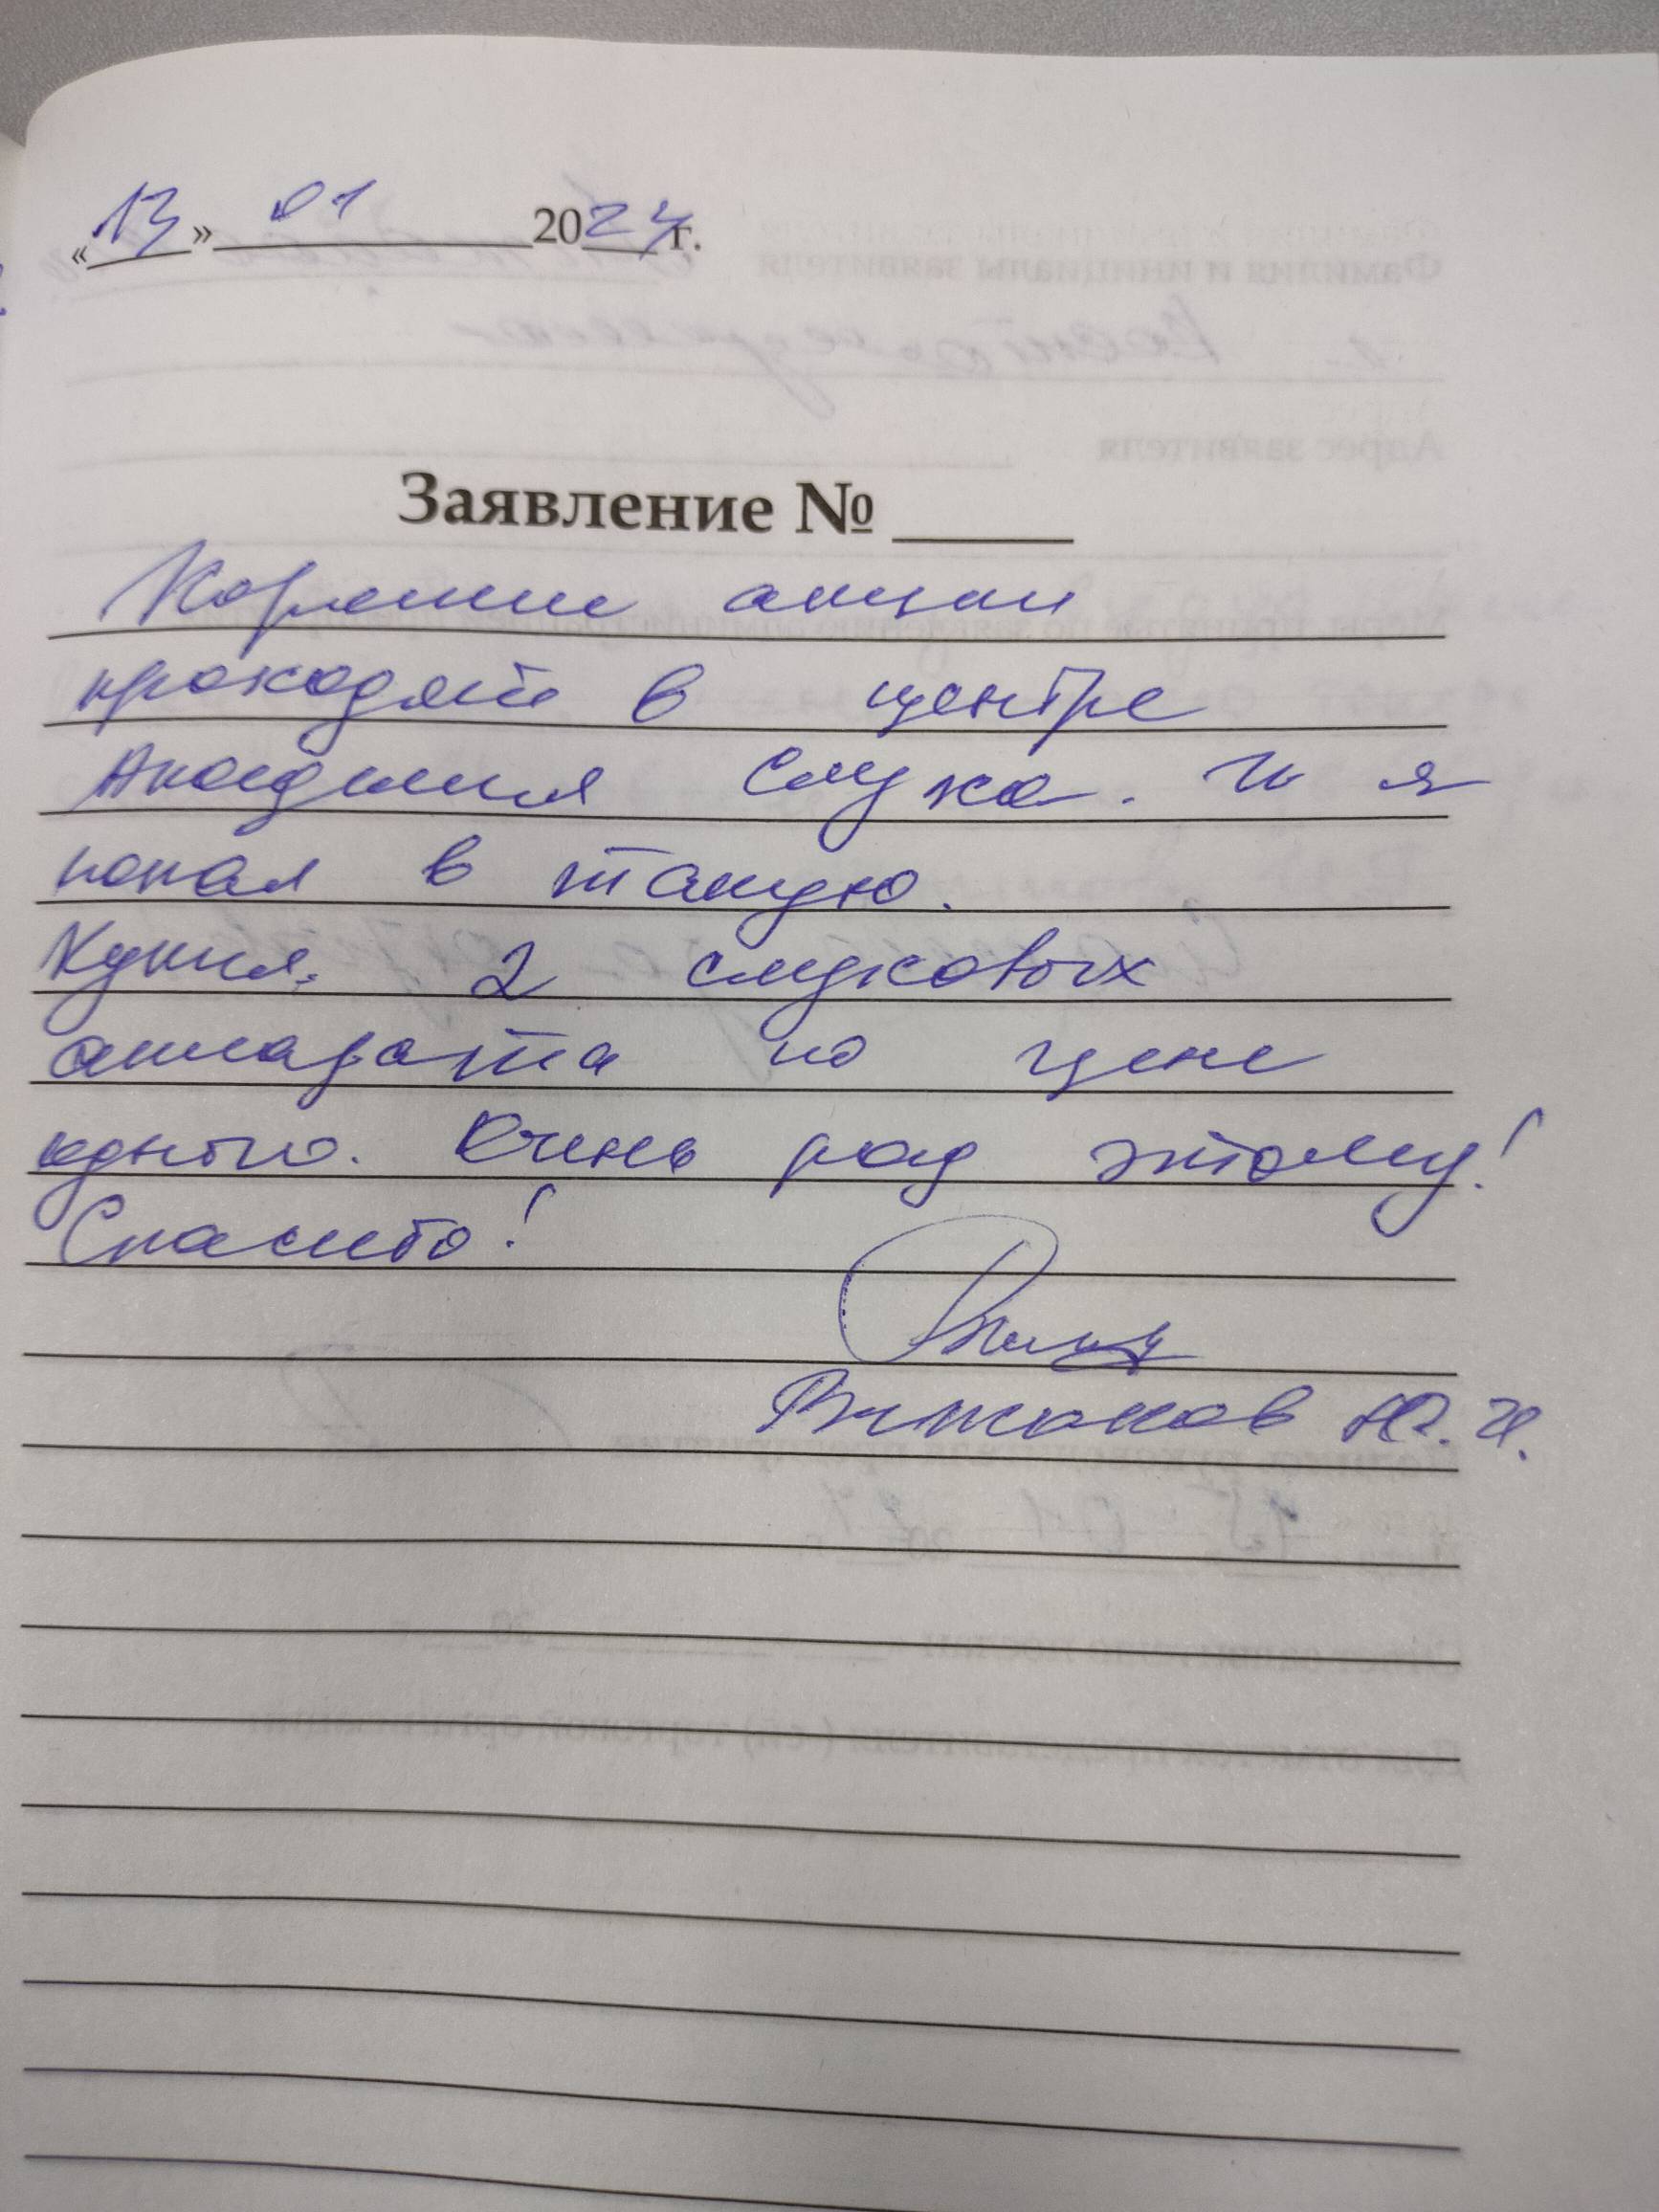 «13» 01 2024г.
Заявление №
Хорошие акции
проходят в центре
Академия слуха. И я
попал в такую.
Купил 2 слуховых
аппарата по цене
одного. Очень рад этому!
Спасибо!
Ю.И.